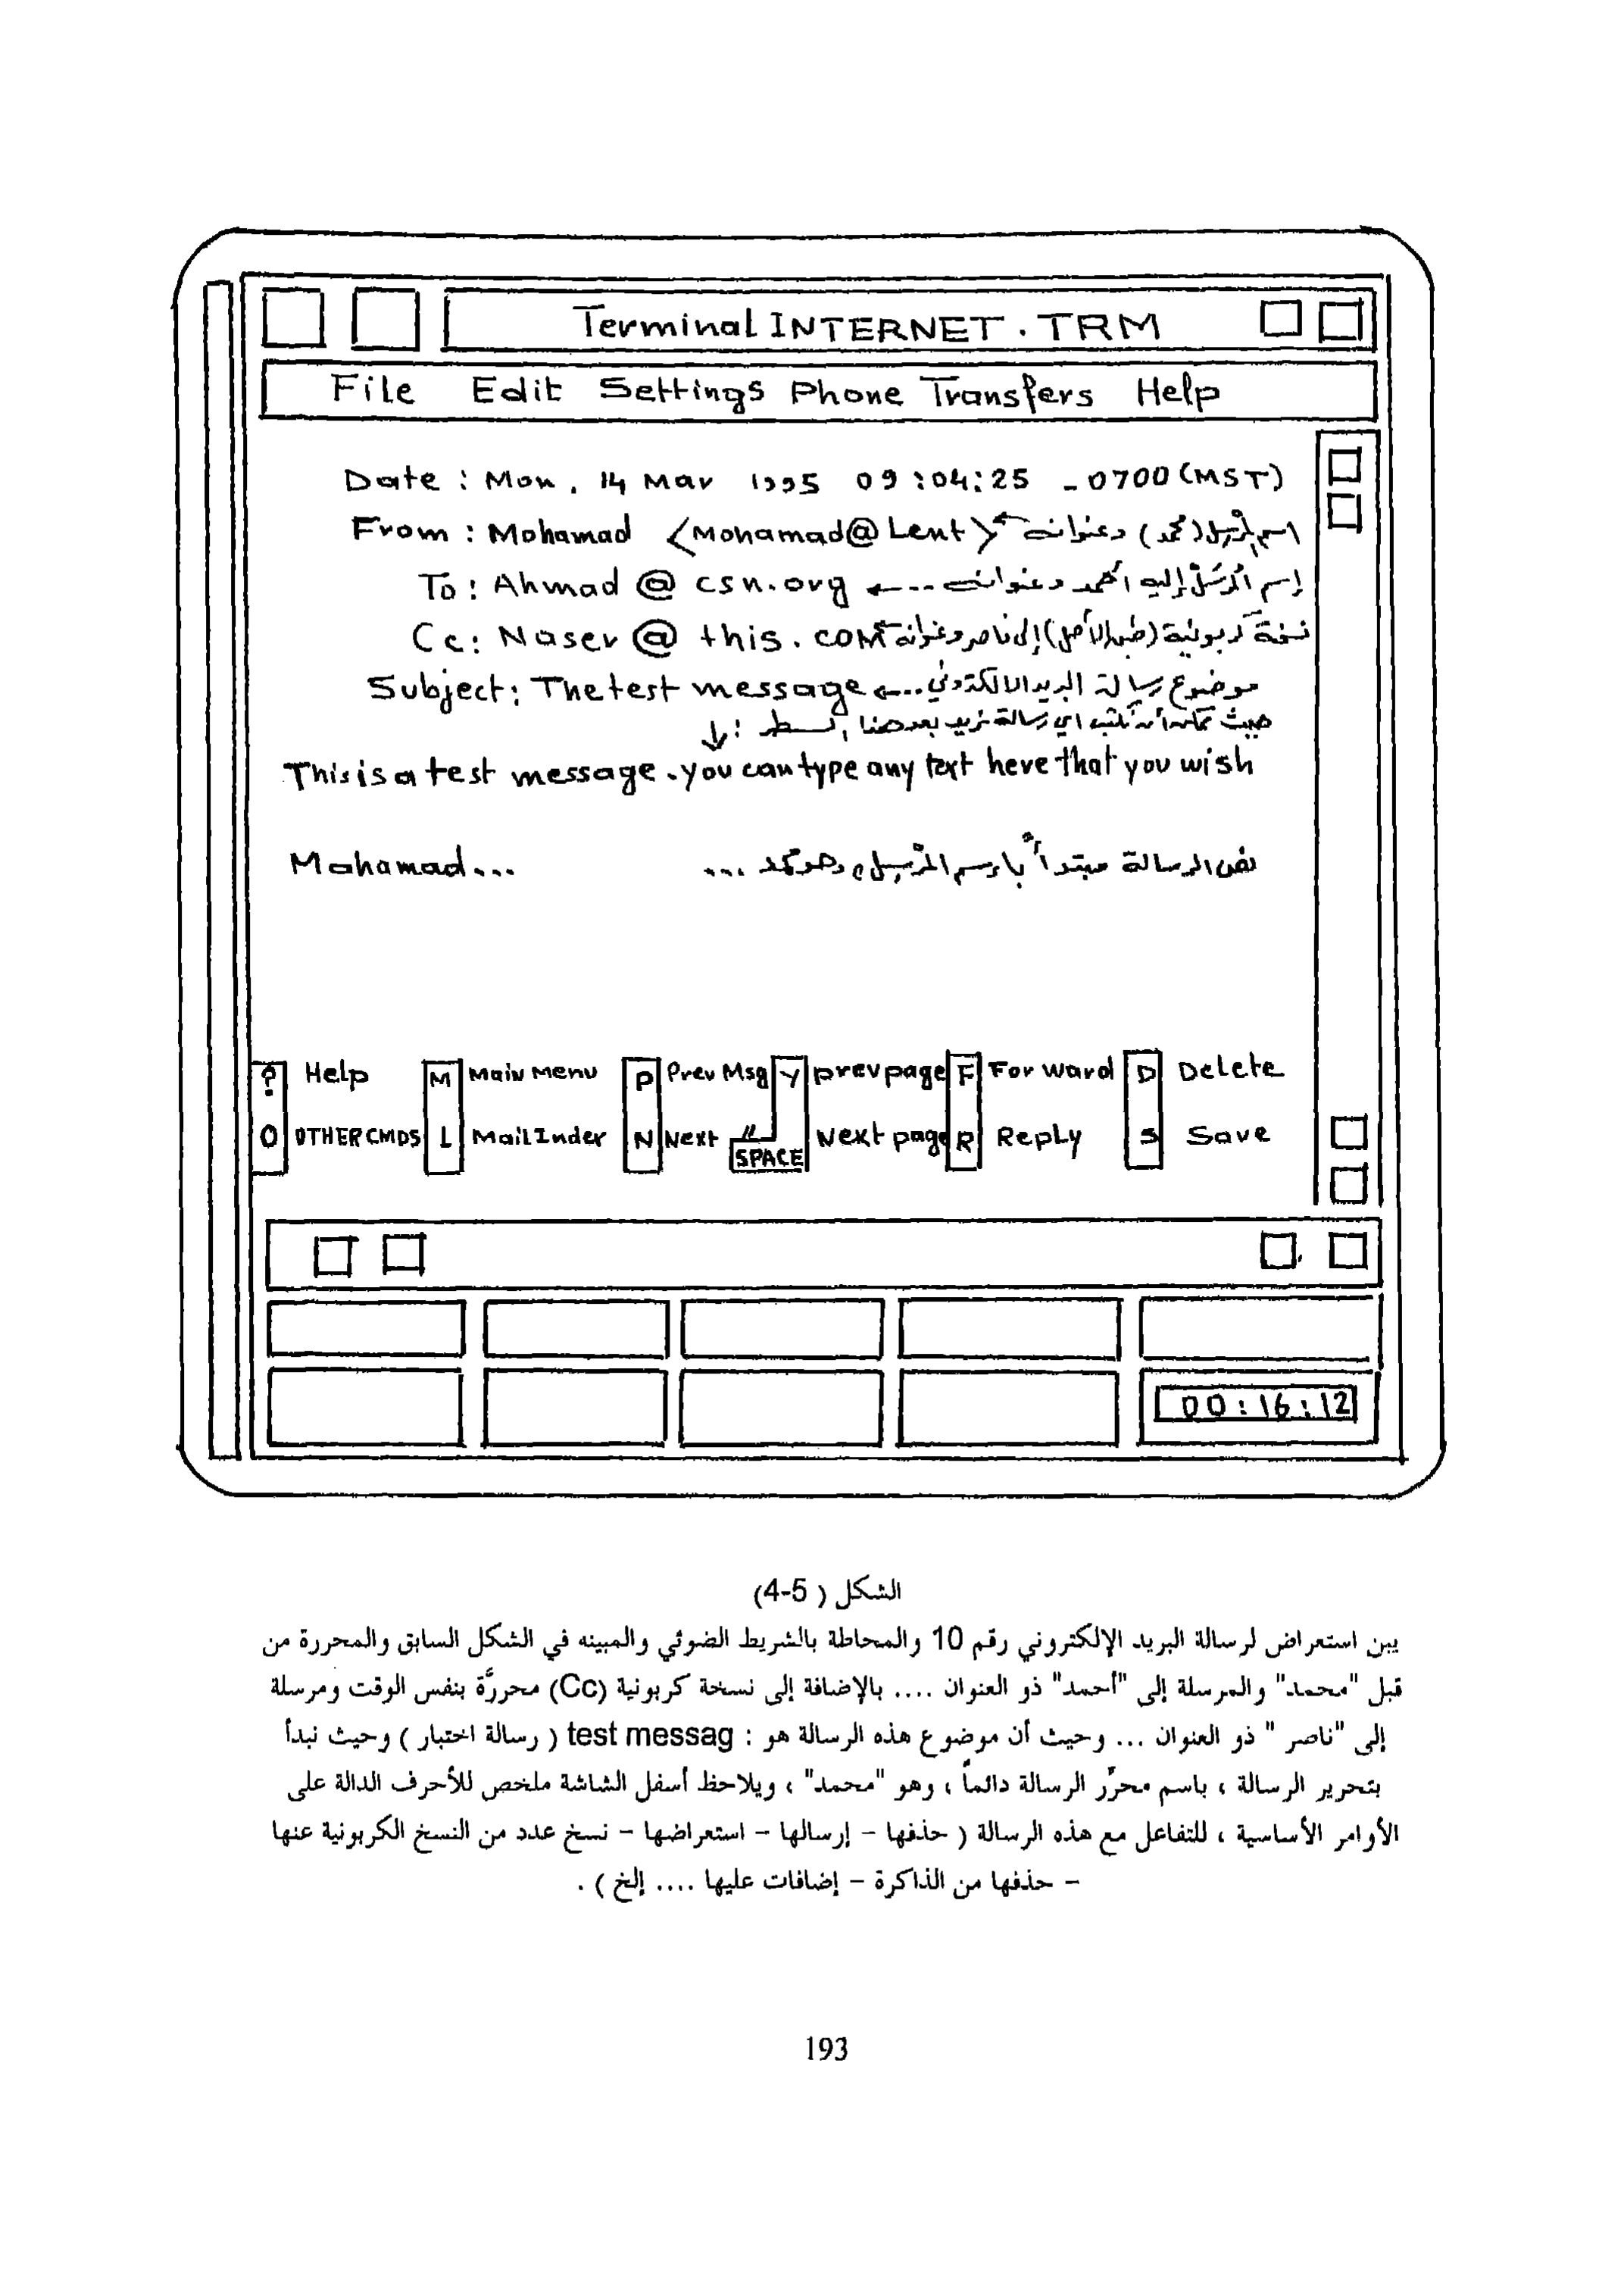 Terminal INTERNET . TRM
File Edit Settings Phone Transfers Help
Date : Mon , 14 Mar 1995 09:04:25 -0700 (MST)
From : Mohamad <Mohamad@Lent> اسم المُرسِل (محمد) وعنوانه
To : Ahmad @ csn.org إسم المُرسَل إليه أحمد وعنوانه ...
Cc : Naser @ this.com نسخة كربونية (طبق الأصل) إلى ناصر وعنوانه
Subject : The test message موضوع رسالة البريد الالكتروني ...
حيث يمكنه أن تكتب اي رسالة تريد بعد هذا السطر :
This is a test message . you can type any text here that you wish
Mohamad ... نص الرسالة مبتدأ بإسم المُرسِل وهو محمد ...
? Help M Main Menu P Prev Msg Y prev page F For Ward D Delete
O OTHER CMDS L Mail Inder N Next SPACE Next page R Reply S Save
00:16:12
الشكل ( 5-4)
يبن استعراض لرسالة البريد الإلكتروني رقم 10 والمحاطة بالشريط الضوئي والمبينه في الشكل السابق والمحررة من
قبل "محمد" والمرسلة إلى "أحمد" ذو العنوان .... بالإضافة إلى نسخة كربونية (Cc) محررَّة بنفس الوقت ومرسلة
إلى "ناصر " ذو العنوان ... وحيث أن موضوع هذه الرسالة هو : test messag ( رسالة اختبار ) وحيث نبدأ
بتحرير الرسالة ، باسم محرِّر الرسالة دائماً ، وهو "محمد" ، ويلاحظ أسفل الشاشة ملخص للأحرف الدالة على
الأوامر الأساسية ، للتفاعل مع هذه الرسالة ( حذفها – إرسالها – استعراضها – نسخ عدد من النسخ الكربونية عنها
– حذفها من الذاكرة – إضافات عليها .... إلخ ) .
193